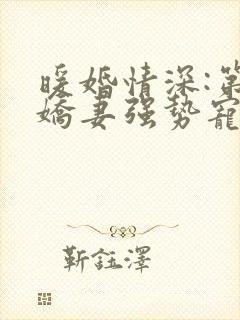 暖婚情深:第
嬌妻強勢寵
靳鈺澤